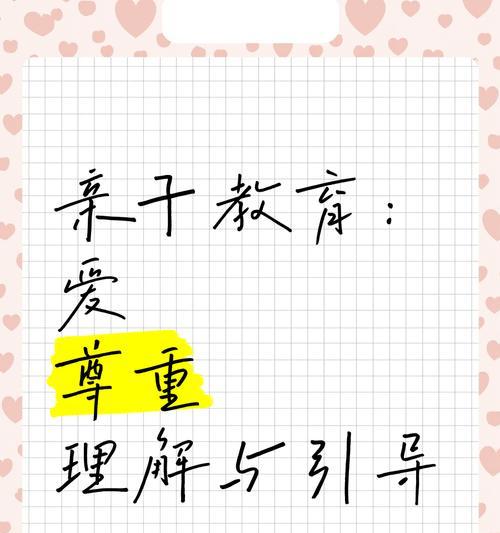 亲子教育：
爱
尊重
理解与引导